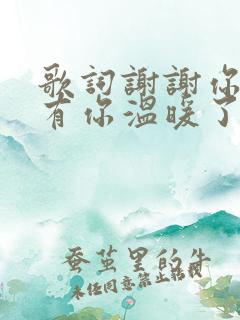 歌词謝謝你
有你温暖了
蚕茧里的牛
未经同意禁止转载